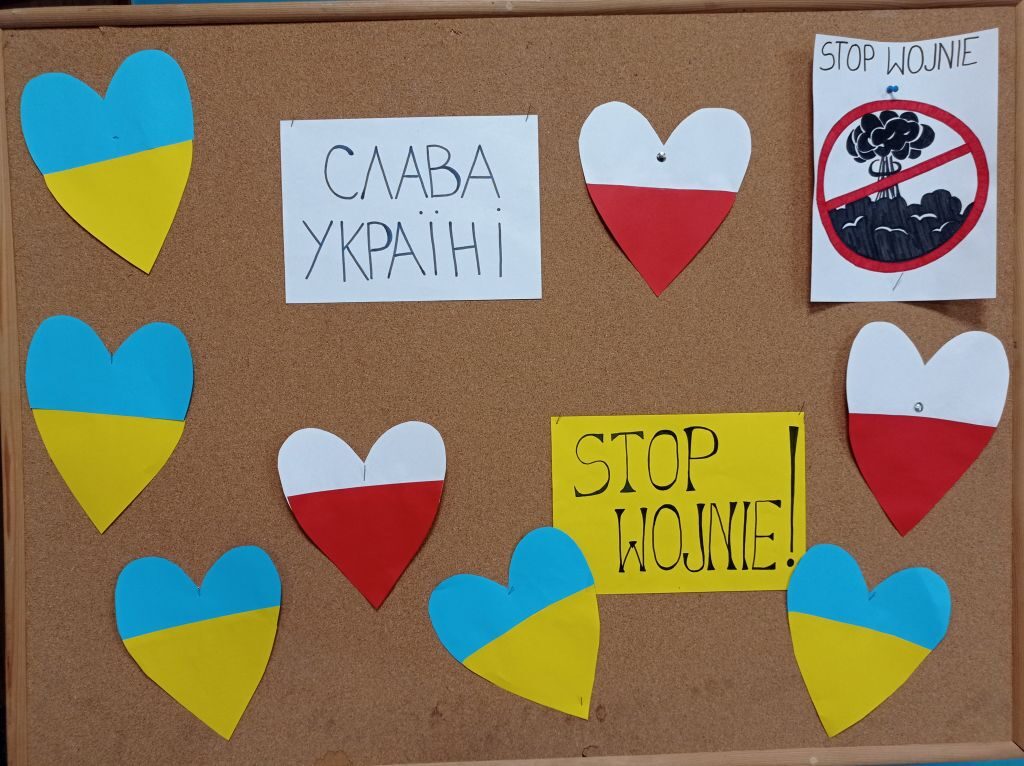 СЛАВА
УКРАЇНІ
STOP WOJNIE
STOP
WOJNIE!